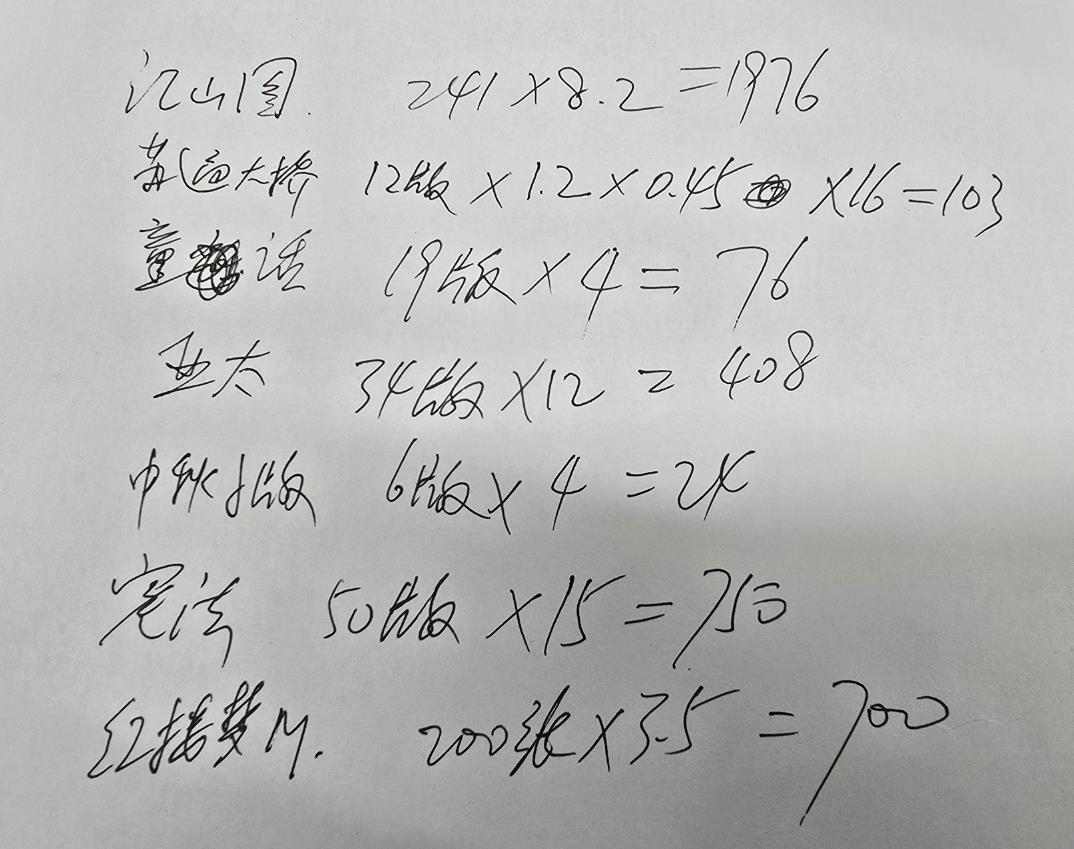 江山图. 241×8.2=1976
苏通大桥 12版×1.2×0.45×16=103
童话 19版×4=76
亚太 34版×12=408
中秋小版 6版×4=24
宪法 50版×15=750
红楼梦M. 200张×3.5=700